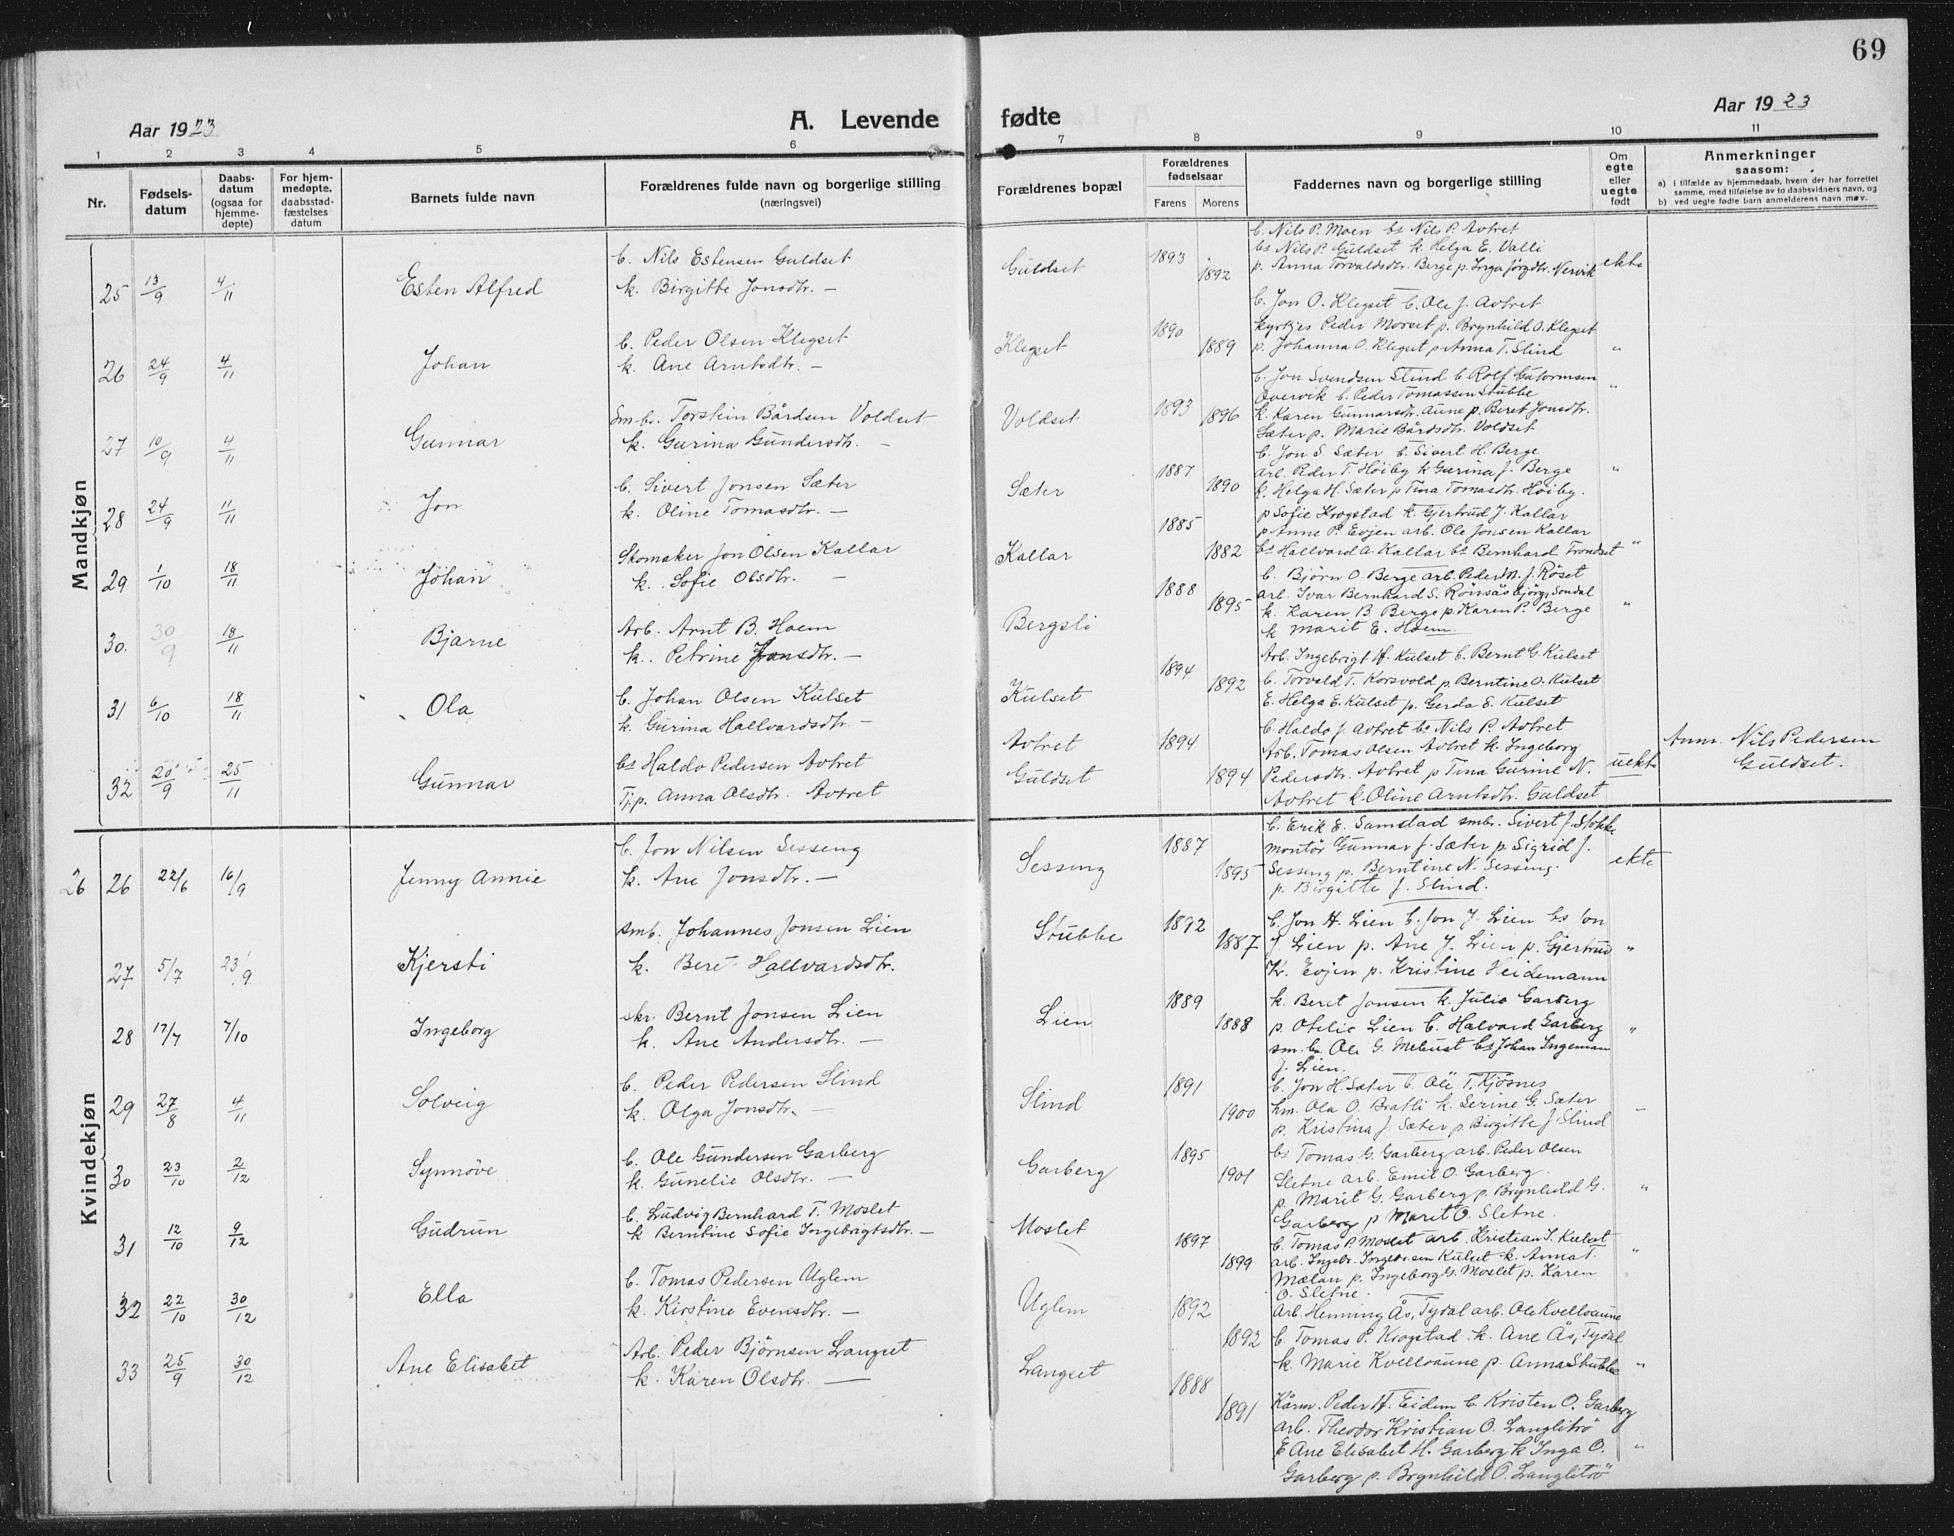 69
Aar 1923
A. Levende fødte
Aar 1923
1 2 3 4 5 6 7 8 9 10 11
Nr.
Fødsels-
datum
Daabs-
datum
(ogsaa for
hjemme-
døpte)
For hjem-
medøpte,
daabsstad-
fæstelses
datum
Barnets fulde navn
Forældrenes fulde navn og borgerlige stilling
(næringsvei)
Forældrenes bopæl
Forældrenes
fødselsaar
Farens Morens
Faddernes navn og borgerlig stilling
Om
egte
eller
uegte
født
Anmerkninger
saasom:
a) i tilfælde av hjemmedaab, hvem der har forrettet
samme, med tilføielse av to daabsvidners navn, og
b) ved uegte fødte barn anmelderens navn m. v.
Mandkjøn
25 13/9 4/11 Esten Alfred
b. Nils Estensen Guldset
k. Birgitte Jonsdtr. —
Guldset 1893 1892
b. Nils P. Moen bs Nils P. Avtret
bs Nils P. Guldset k. Helga E. Valli
p. Anna Torvaldsdtr. Berge p. Inga Jørgdtr. Nervik
ekte
26 24/9 4/11 Johan
b. Peder Olsen Klegset
k. Ane Arntsdtr. —
Klegset 1890 1889
b. Jon O. Klegset b. Ole J. Avtret
kyrkjes Peder Morset p. Brynhild O. Klegset
p. Johanna O. Klegset p Anna T. Slind
"
27 10/9 4/11 Gunnar
Sm.br. Torstein Bårdsen Voldset
k. Gurina Gundersdtr. —
Voldset 1893 1896
b. Jon Svendsen Slind b. Rolf Guttormsen
Overvik b. Peder Tomassen Stubbe
k. Karen Gunnarsdtr. Aune p. Beret Jonsdtr.
Sæter p. Marie Bårdsdtr. Voldset
"
28 24/9 11/11 Jon
b. Sivert Jonsen Sæter
k. Oline Tomasdtr. —
Sæter 1887 1890
b. Jon S. Sæter b. Sivert H. Berge
arb. Peder T. Høiby k Gurina J. Berge
k. Helga H. Sæter p Tina Tomasdtr. Høiby.
"
29 1/10 18/11 Johan
Skomaker Jon Olsen Kallar
k. Sofie Olsdtr. —
Kallar 1885 1882
p Sofie Krogstad k. Gjertrud J. Kallar
p Anne P. Evjen arb. Ole Jonsen Kallar
bs Hallvard A. Kallar bs Bernhard Trondset
"
30. 30/9 18/11 Bjarne
Arb. Arnt B. Hoem
k. Petrine Jonsdtr. —
Bergsli 1888 1895
b. Bjørn O. Berge arb. Peder M. J. Røset
arb. Ivar Bernhard S. Rønsås
k. Karen B. Berge p. Karen P. Berge
k Marit E. Hoem.
"
31 6/10 18/11 Ola
b. Johan Olsen Kulset
k. Gurina Hallvardsdtr. —
Kulset 1894 1892
Arb. Ingebrigt H. Kulset b. Bernt G. Kulset
b. Torvald T. Korsvold p. Berntine O. Kulset
E. Helga E. Kulset p. Gerda E. Kulset
32 20/9 25/11 Gunnar
bs Haldo Pedersen Avtret
Tj.p. Anna Olsdtr. Avtret
Avtret
Guldset
1894 1894
b. Haldo J. Avtret bs Nils P. Avtret
Arb. Tomas Olsen Avtret k. Ingeborg
Pedersdtr. Avtret p Tina Gurine N.
Avtret k. Oline Arntsdtr. Guldset
uekte
Anm. Nils Pedersen
Guldset.
Kvindekjøn
26 26 22/6 16/9 Jenny Annie
b. Jon Nilsen Sesseng
k. Ane Jonsdtr. —
Sesseng 1887 1895
b. Erik E. Samstad smbr. Sivert J. Stokke
montør Gunnar J. Sæter p Sigrid J.
Sesseng p. Berntine N. Sesseng.
p. Birgitte J. Slind.
ekte
27 5/7 23/9 Kjersti
smb. Johannes Jonsen Lien
k. Beret Hallvardsdtr.
Stubbe 1892 1887
b. Jon H. Lien b. Jon J. Lien bs Jon
J. Lien p. Ane J. Lien p. Gjertrud
K. Evjen p. Kristine Heidemann
"
28 17/7 7/10 Ingeborg
skr. Bernt Jonsen Lien
k. Ane Andersdtr. —
Lien 1889 1888
k. Beret Jonsen k. Julie Garberg
p. Otelie Lien b. Halvard Garberg
sm. br. Ole G. Mebust bs Johan Ingeman
J. Lien.
"
29 27/8 4/11 Solveig
b. Peder Pedersen Slind
k. Olga Jonsdtr. —
Slind 1891 1900
b. Jon H. Sæter b. Ole T. Kjøsnes
hm. Ola O. Bratli k. Serine G. Sæter
p. Kristina J. Sæter p Birgitte J. Slind
"
30 23/10 2/12 Synnöve
b. Ole Gundersen Garberg
k. Gunelie Olsdtr. —
Garberg 1895 1901
bs Tomas G. Garberg arb. Peder Olsen
Sletne arb. Emil O. Garberg.
p. Marit G. Garberg p. Brynhild G.
Garberg p Marit O. Sletne.
"
31 12/10 9/12 Gudrun
b. Ludvig Bernhard T. Moslet
k Berntine Sofie Ingebrigtsdtr. —
Moslet 1897 1899
b. Tomas P. Moslet arb. Kristian I. Kulset
arb. Ingebr. Ingebr.sen Kulset k. Anna T.
Mælan p. Ingeborg G. Moslet p. Karen
O. Sletne.
"
32 22/10 30/12 Ella
b. Tomas Pedersen Uglem
k. Kirstine Evensdtr. —
Uglem 1892 1892
Arb. Henning Ås, Tydal arb. Ole Kvellsaune
b. Tomas P. Krogstad k. Ane Ås, Tydal
k. Marie Kvellsaune p. Anna Stubbe
"
33 25/9 30/12 Ane Elisabet
Arb. Peder Bjørnsen Langset
k. Karen Olsdtr. —
Langset 1888 1891
Kårm. Peder H. Eidem b. Kristen O. Garberg
arb. Theodor Kristian O. Langlitrö
E Ane Elisabet H. Garberg k Inga O.
Garberg p. Brynhild O. Langlitrö
"